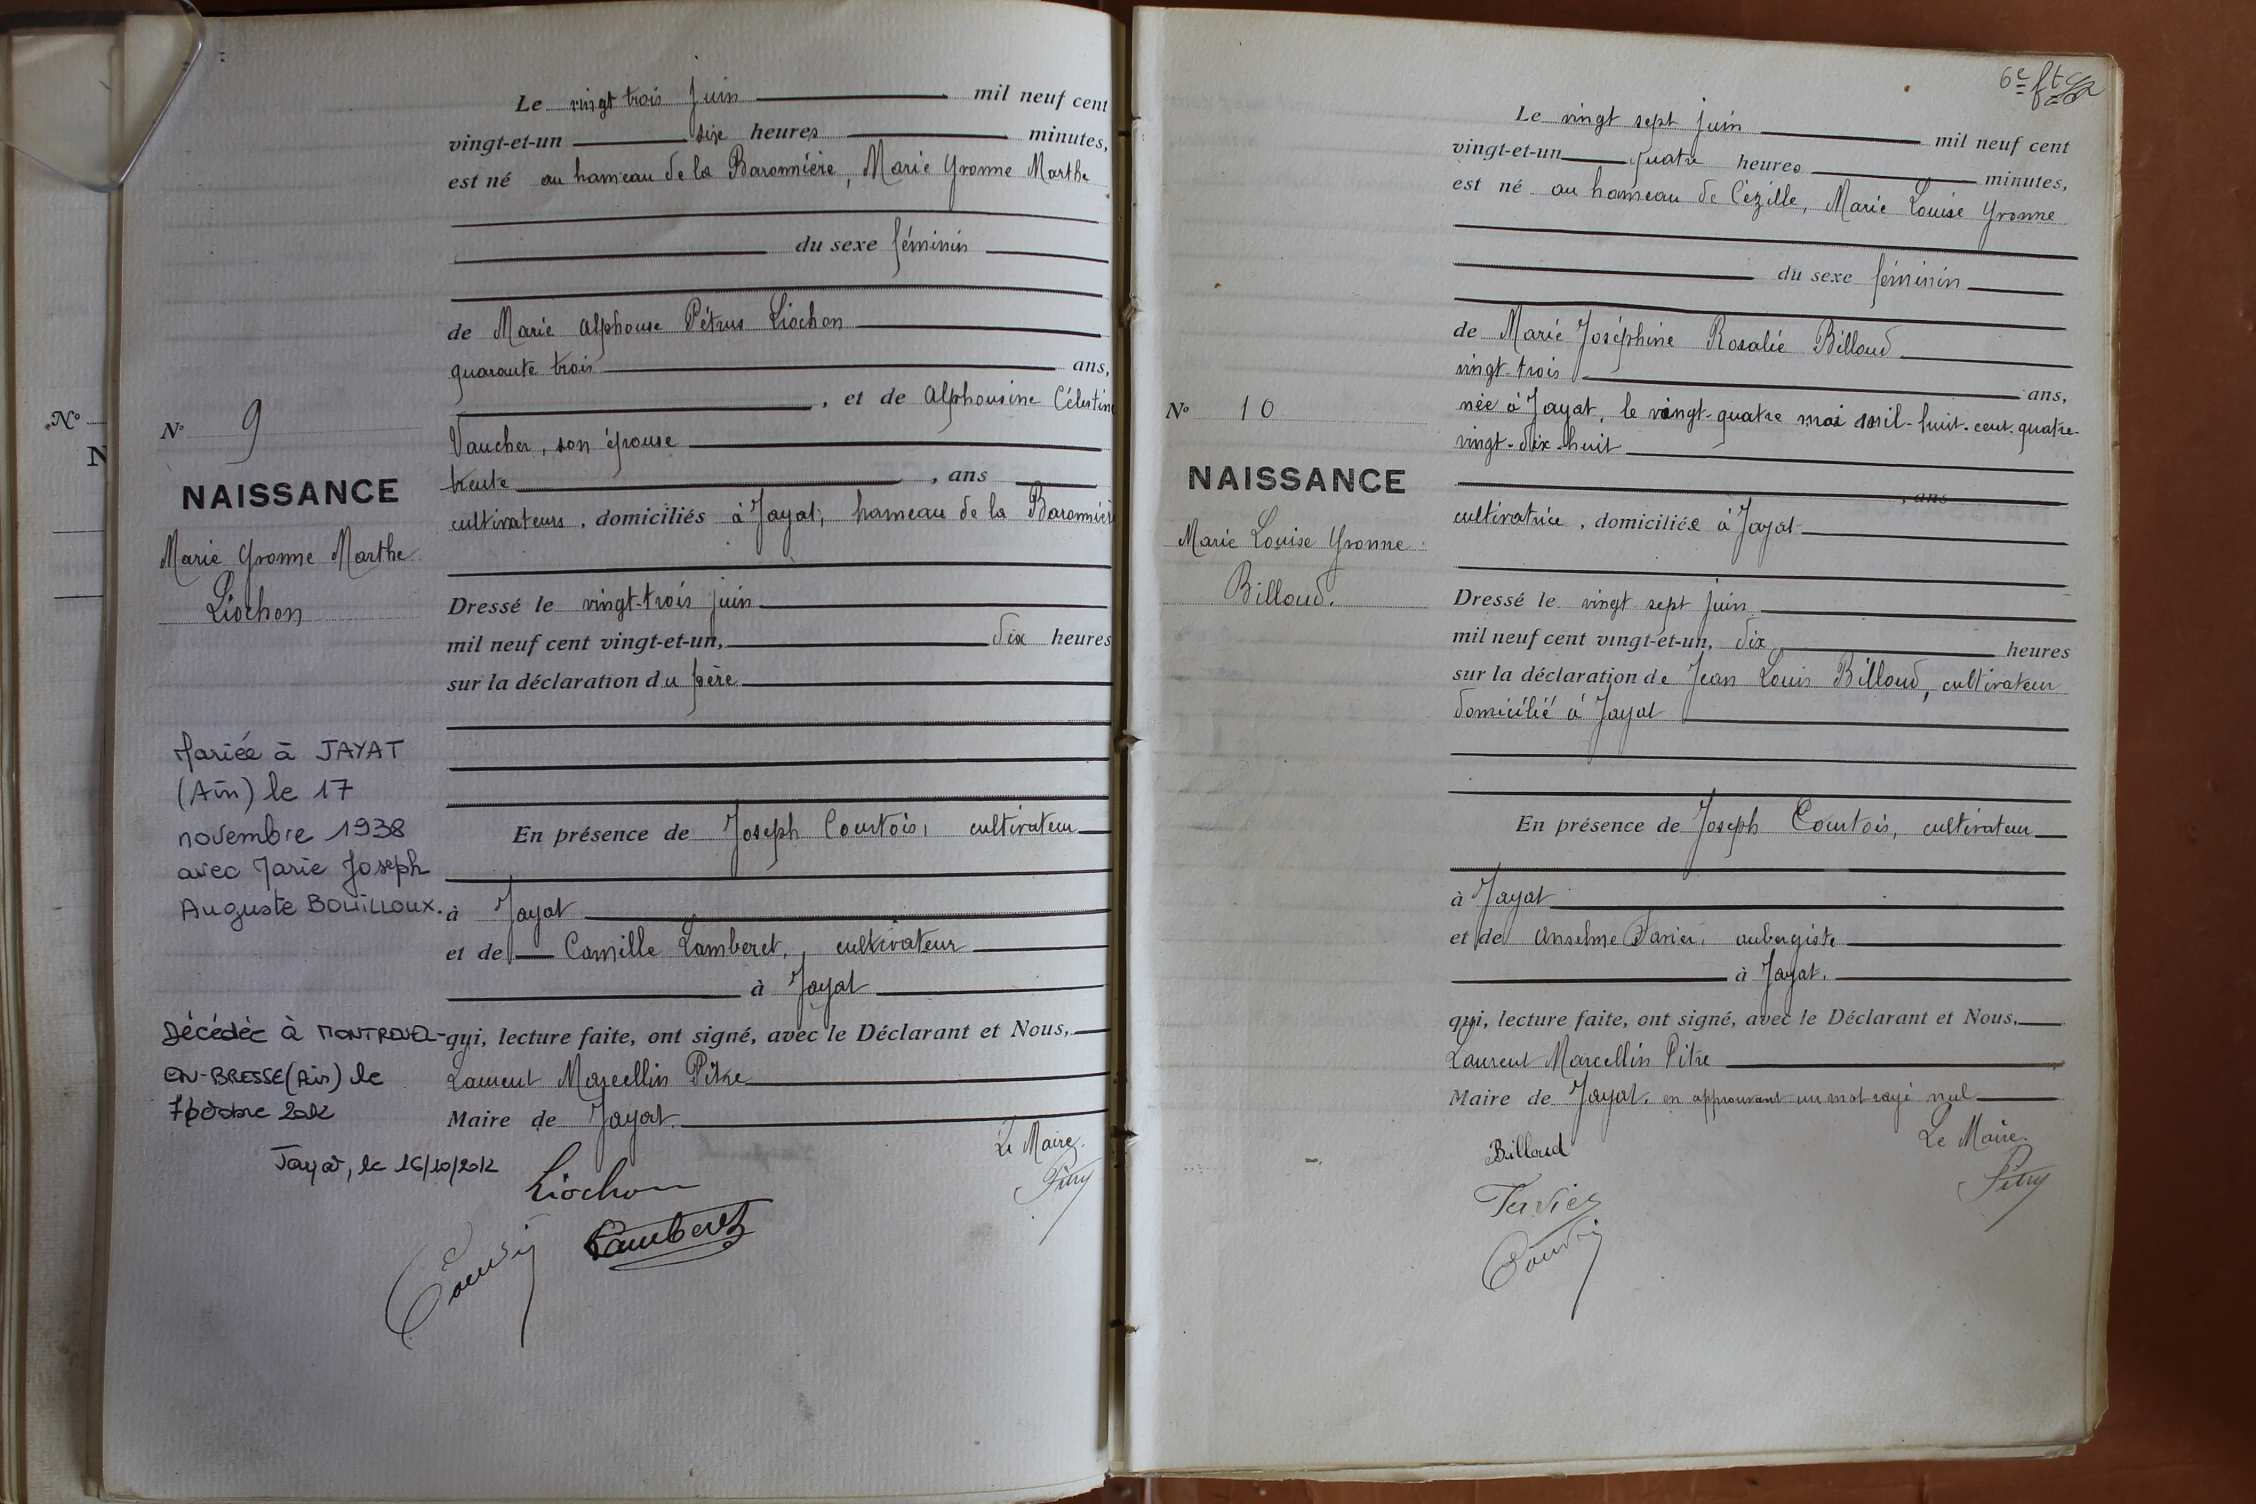 N°
N
Le vingt trois juin mil neuf cent
vingt-et-un six heures minutes,
est né au hameau de la Baronnière, Marie Yvonne Marthe
du sexe féminin
de Marie Alphonse Pétrus Liochon
quarante trois ans,
, et de Alphonsine Célestine
Vaucher, son épouse
trente , ans
cultivateurs, domiciliés à Jayat, hameau de la Baronnière
Dressé le vingt-trois juin
mil neuf cent vingt-et-un, dix heures
sur la déclaration du père
En présence de Joseph Courtois, cultivateur
à Jayat
et de Camille Lamberet, cultivateur
à Jayat
qui, lecture faite, ont signé, avec le Déclarant et Nous,
Laurent Marcellin Pitre
Maire de Jayat.
Le Maire.
Liochon
Lamberet
N° 9
NAISSANCE
Marie Yvonne Marthe
Liochon
Mariée à JAYAT
(Ain) le 17
novembre 1938
avec Marie Joseph
Auguste BOUILLOUX.
Décédée à MONTREVEL-
EN-BRESSE (Ain) le
7 octobre 2012
Jayat, le 16/10/2012
6e ft
Le vingt sept juin mil neuf cent
vingt-et-un quatre heures minutes,
est né au hameau de Cézille, Marie Louise Yvonne
du sexe féminin
de Marie Joséphine Rosalie Billoud
vingt-trois ans,
née à Jayat, le vingt-quatre mai mil-huit-cent-quatre-
vingt-dix-huit
, ans
cultivatrice, domiciliée à Jayat
Dressé le vingt sept juin
mil neuf cent vingt-et-un, dix heures
sur la déclaration de Jean Louis Billoud, cultivateur
domicilié à Jayat
En présence de Joseph Courtois, cultivateur
à Jayat
et de Anselme Favier, aubergiste
à Jayat.
qui, lecture faite, ont signé, avec le Déclarant et Nous,
Laurent Marcellin Pitre
Maire de Jayat. en approuvant un mot rayé nul
Le Maire.
Billoud
N° 10
NAISSANCE
Marie Louise Yvonne
Billoud.